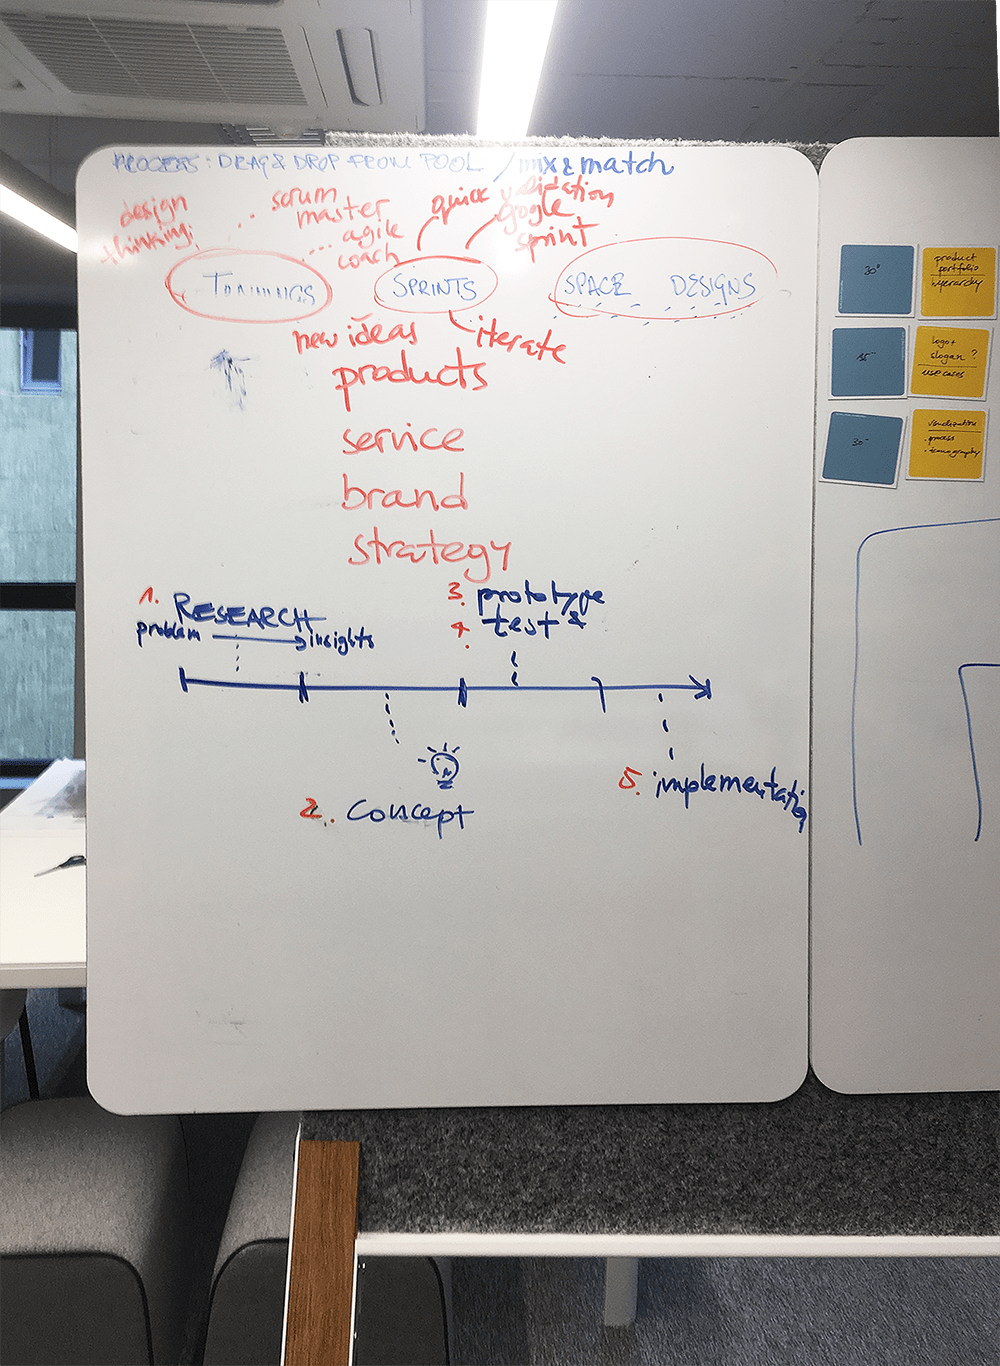 PROCESS: DRAG & DROP FROM POOL / mix & match
design
thinking
scrum
master
agile
coach
quick validation
google
sprint
TRAININGS
SPRINTS
SPACE DESIGNS
new ideas
iterate
products
service
brand
strategy
1. RESEARCH
problem → insights
3. prototype
4. test &
2. Concept
5. implementation
30"
product
portfolio
hierarchy
15"
logo +
slogan ?
use cases
30"
visualization
process